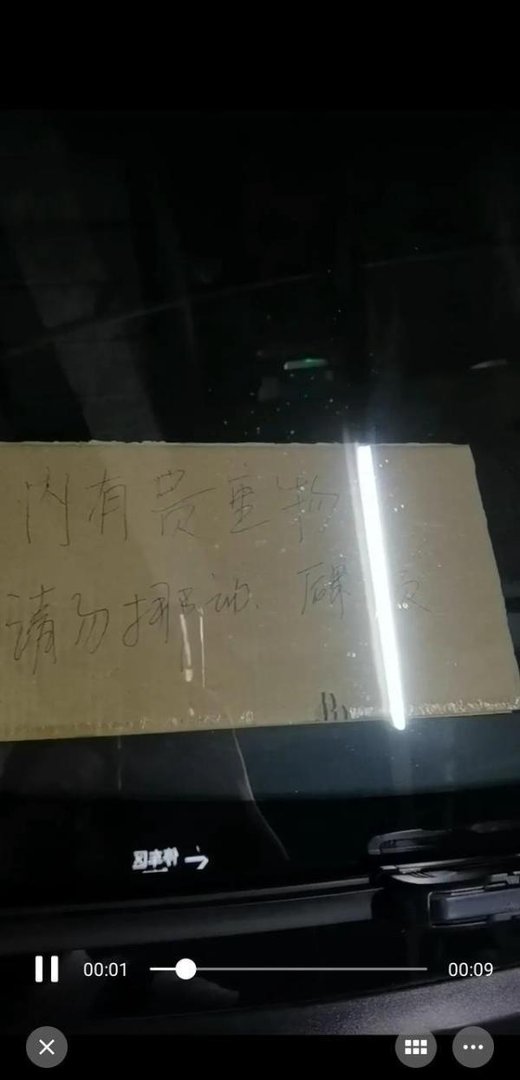 内有贵重物
请勿挪动
停车区
00:01
00:09